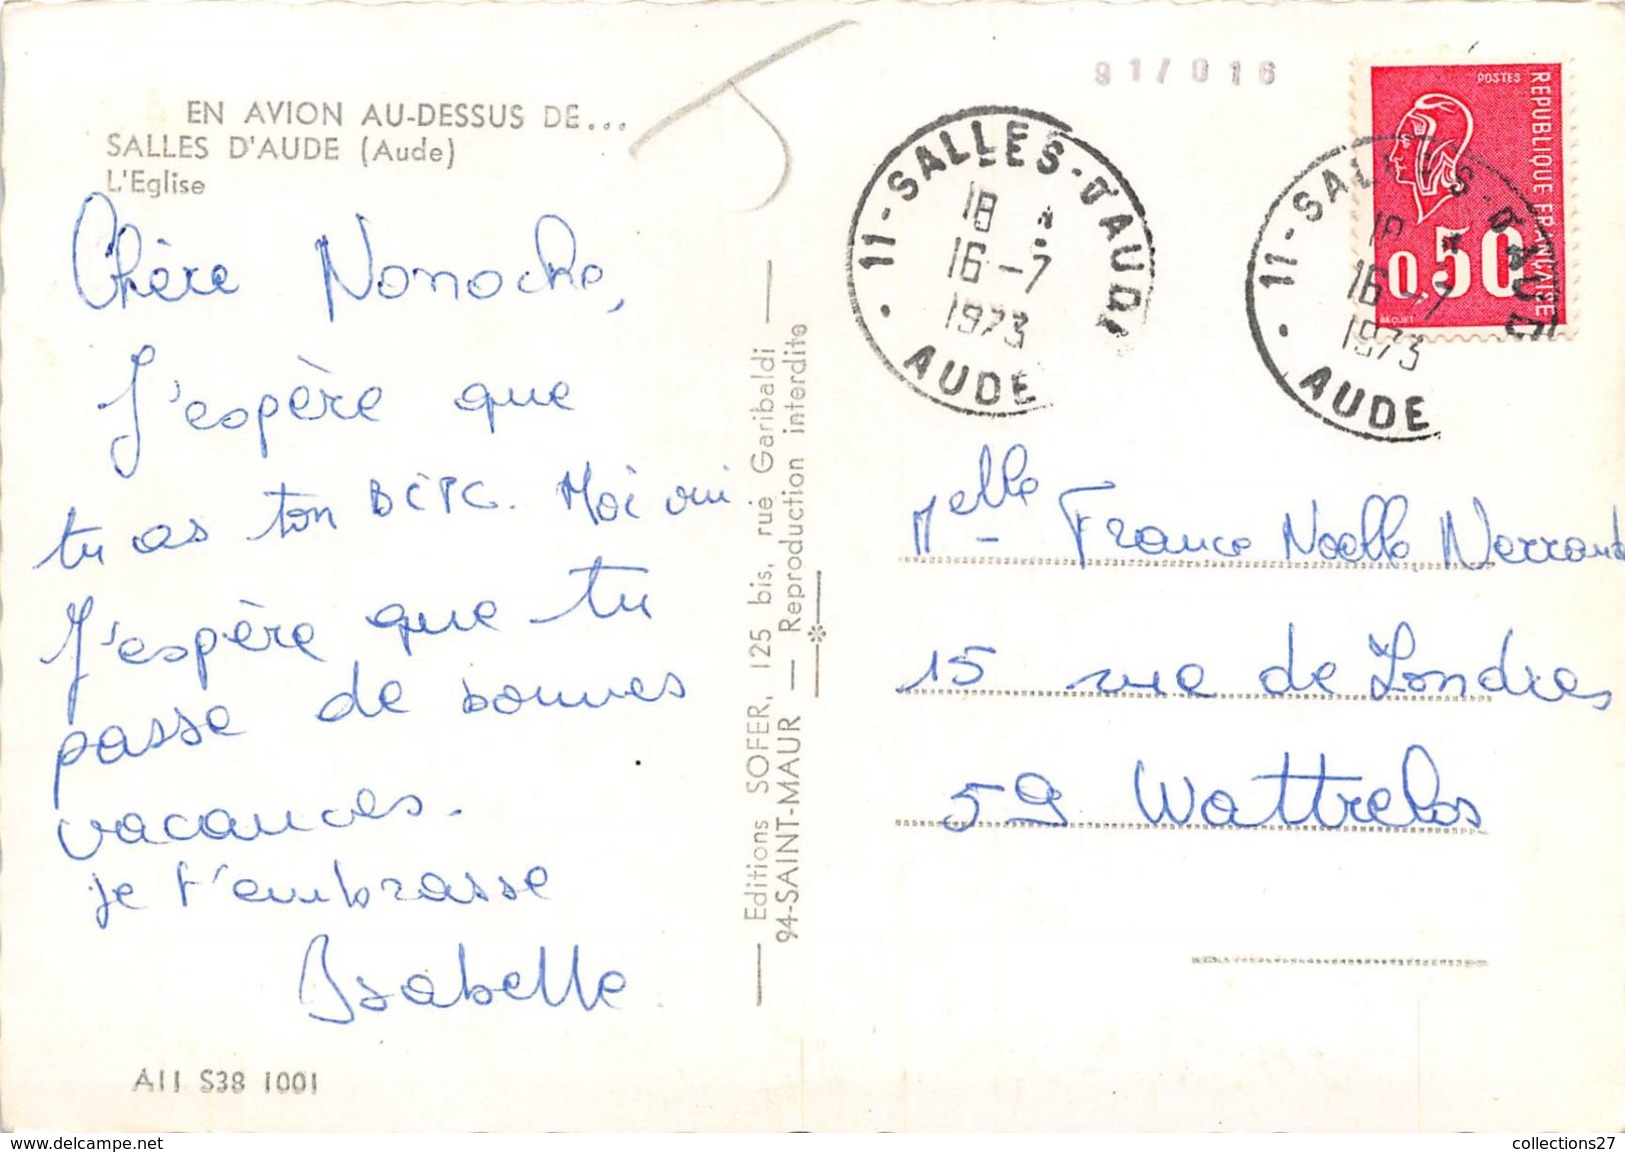 EN AVION AU-DESSUS DE...
SALLES D'AUDE (Aude)
L'Eglise
Chère Nonoche,
J'espère que
tu as ton BEPC. Moi oui
J'espère que tu
passe de bonnes
vacances.
je t'embrasse
Isabelle
A11 S38 1001
Editions SOFER, 125 bis, rue Garibaldi
94-SAINT-MAUR — Reproduction interdite
91/016
11-SALLES-D'AUDE
18
16-7
1973
AUDE
POSTES
REPUBLIQUE FRANÇAISE
0,50
BEQUET
11-SALLES-D'AUDE
18
16-7
1973
AUDE
Melle France Noelle
15 rue de Londres
59 Wattrelos
collections27